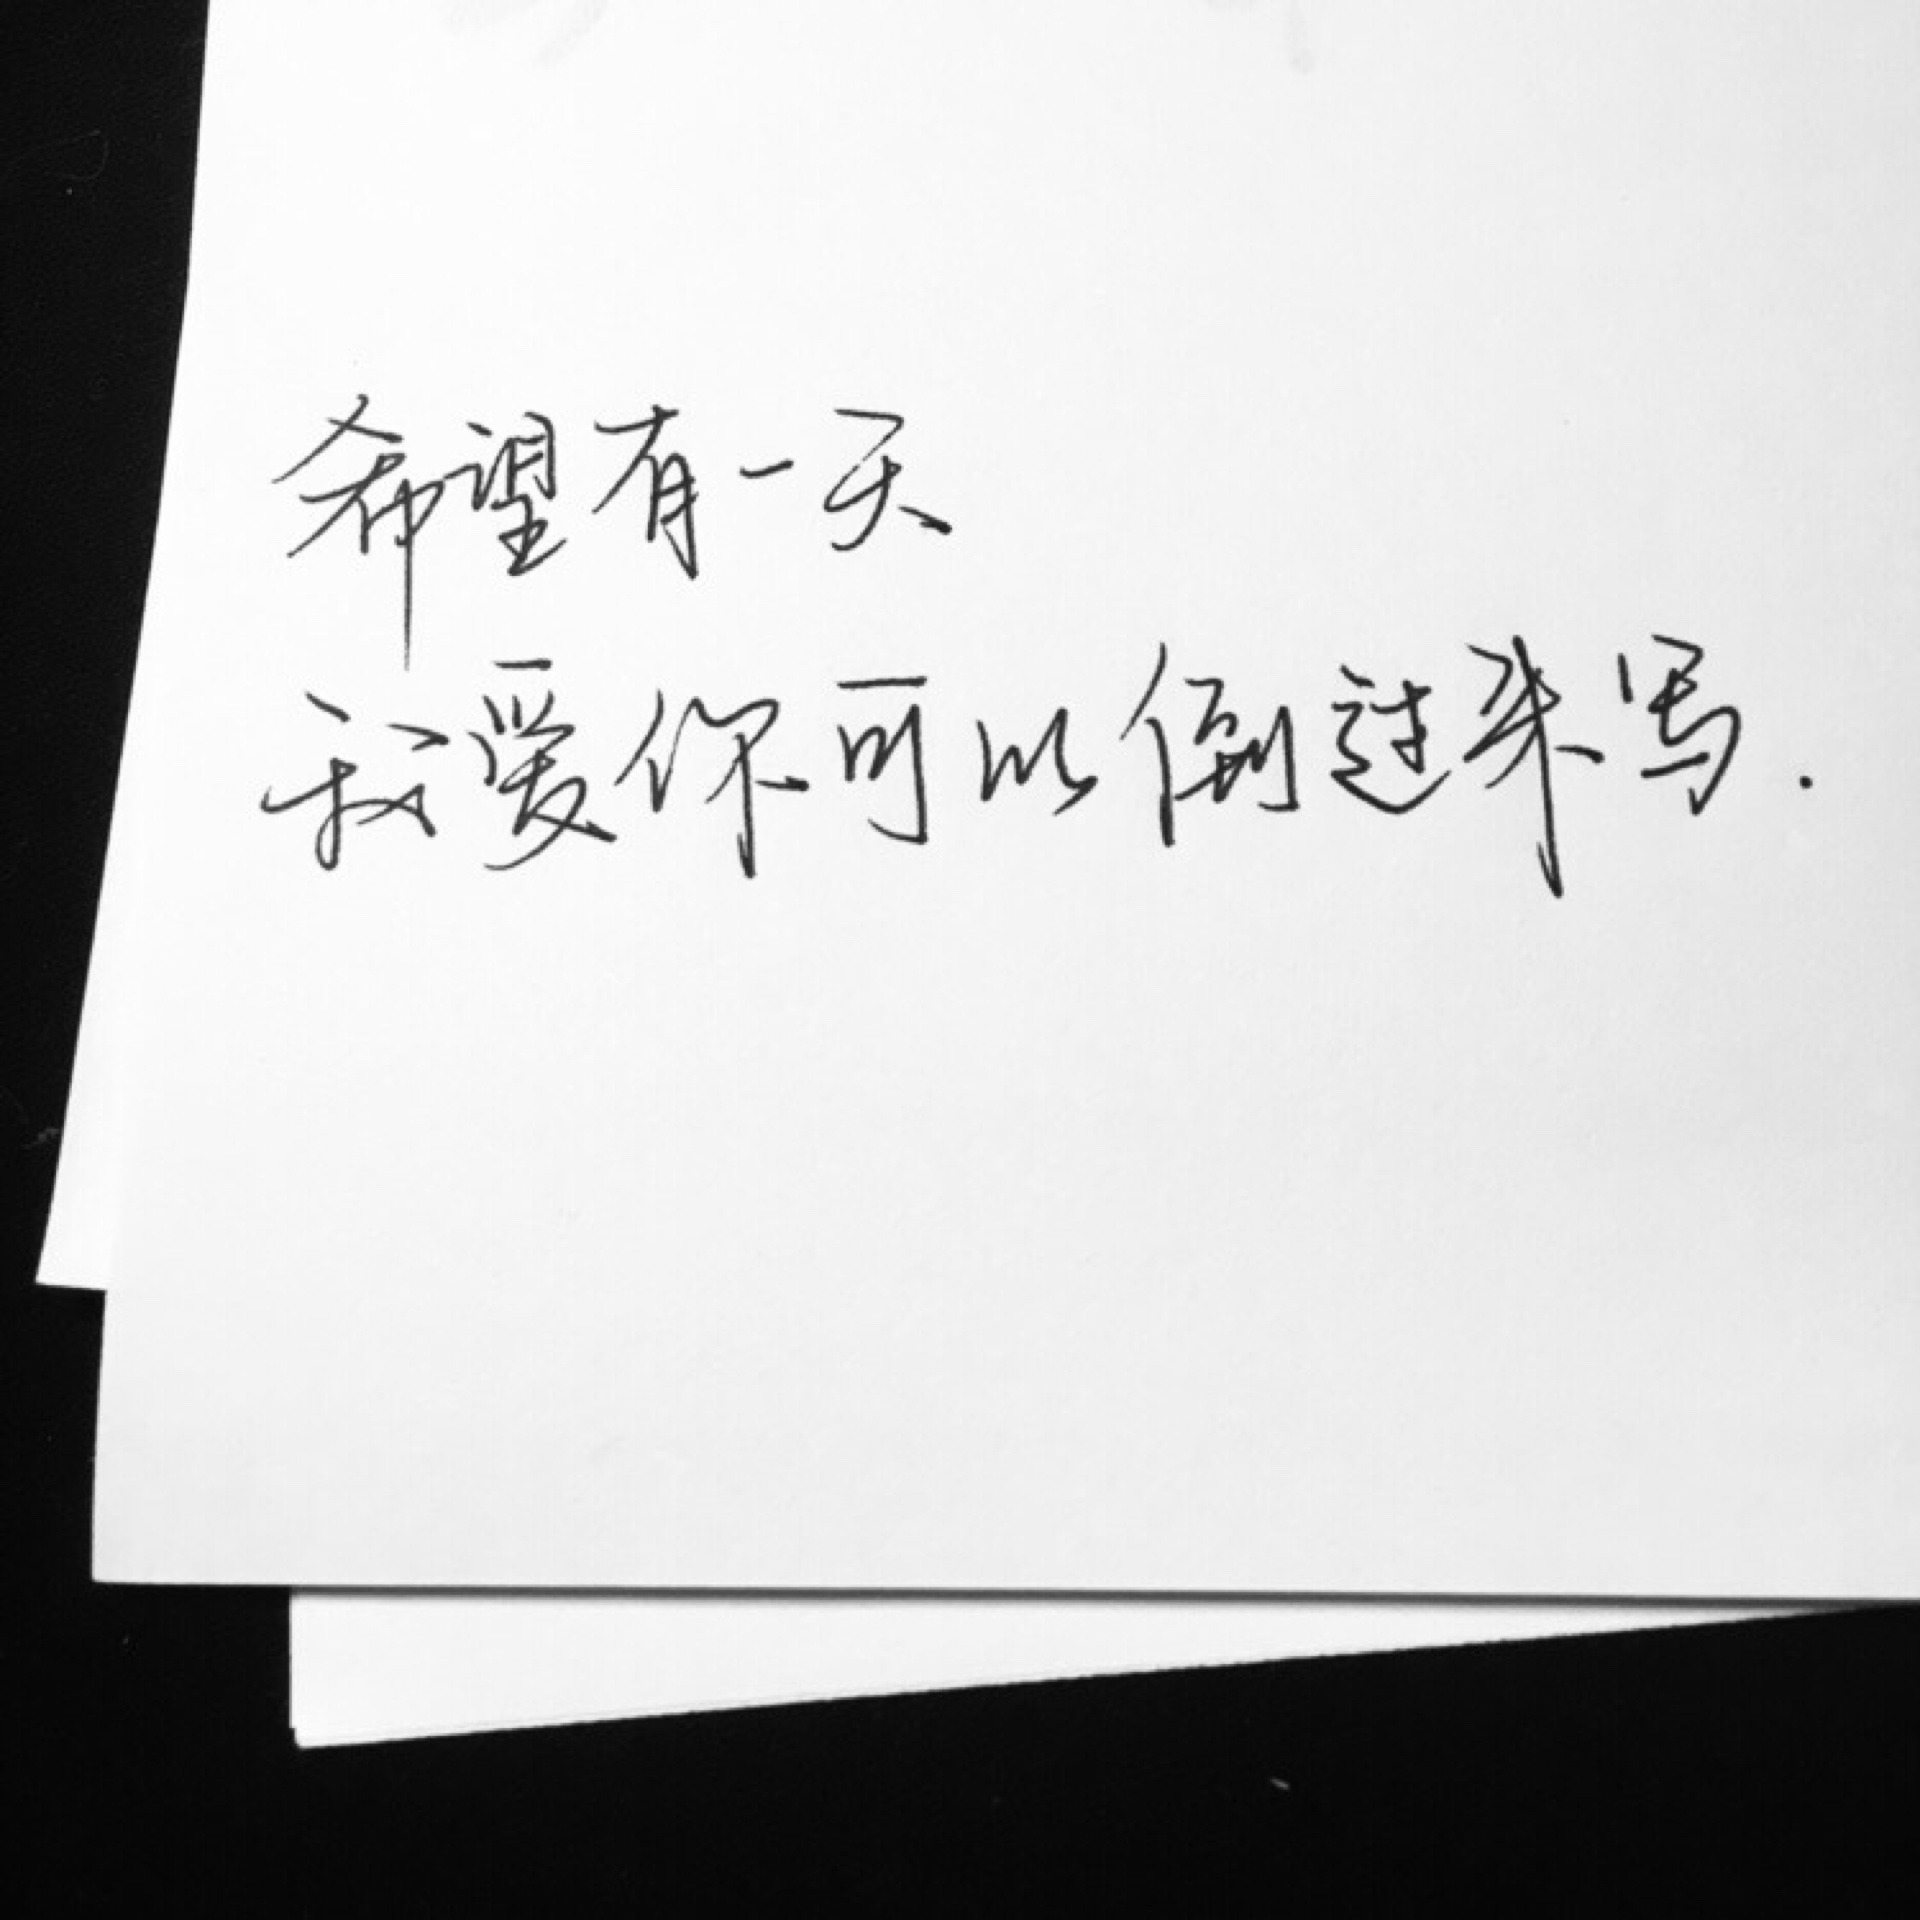 希望有一天
我爱你可以倒过来写.